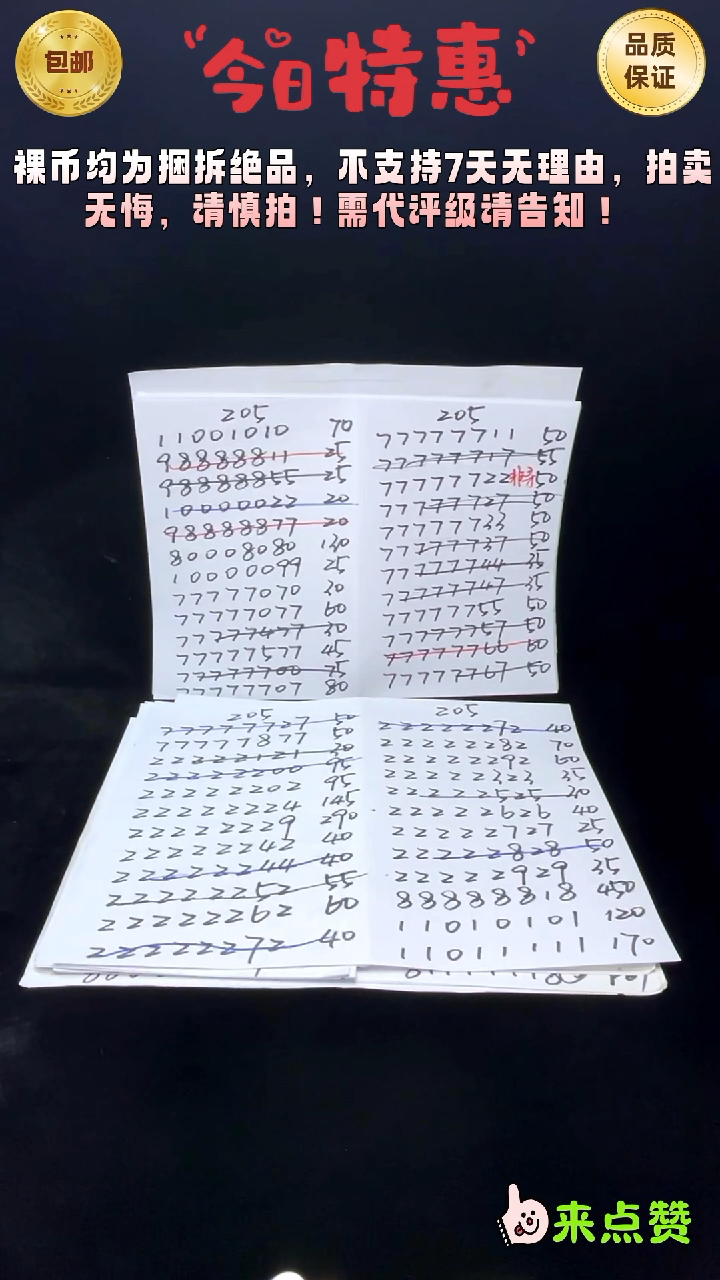 包邮
今日特惠
品质
保证
裸币均为捆拆绝品，不支持7天无理由，拍卖
无悔，请慎拍！需代评级请告知！
205
11001010 70
98888811 25
98888855 25
10000022 20
98888877 20
80008080 130
10000099 25
77777070 30
77777077 60
77777477 30
77777577 45
77777700 75
77777707 80
205
77777711 50
77777717 55
77777722 50
77777727 50
77777733 50
77777737 50
77777744 35
77777747 35
77777755 50
77777757 50
77777766 60
77777767 50
205
77777727 50
77777877 50
22222121 30
22222200 95
22222202 95
22222224 145
22222229 290
22222242 40
22222244 40
22222252 55
22222262 60
22222272 40
205
22222272 40
22222282 70
22222292 60
22222323 35
22222525 30
22222626 40
22222727 25
22222828 50
22222929 35
88888818 450
11010101 120
11011111 170
来点赞